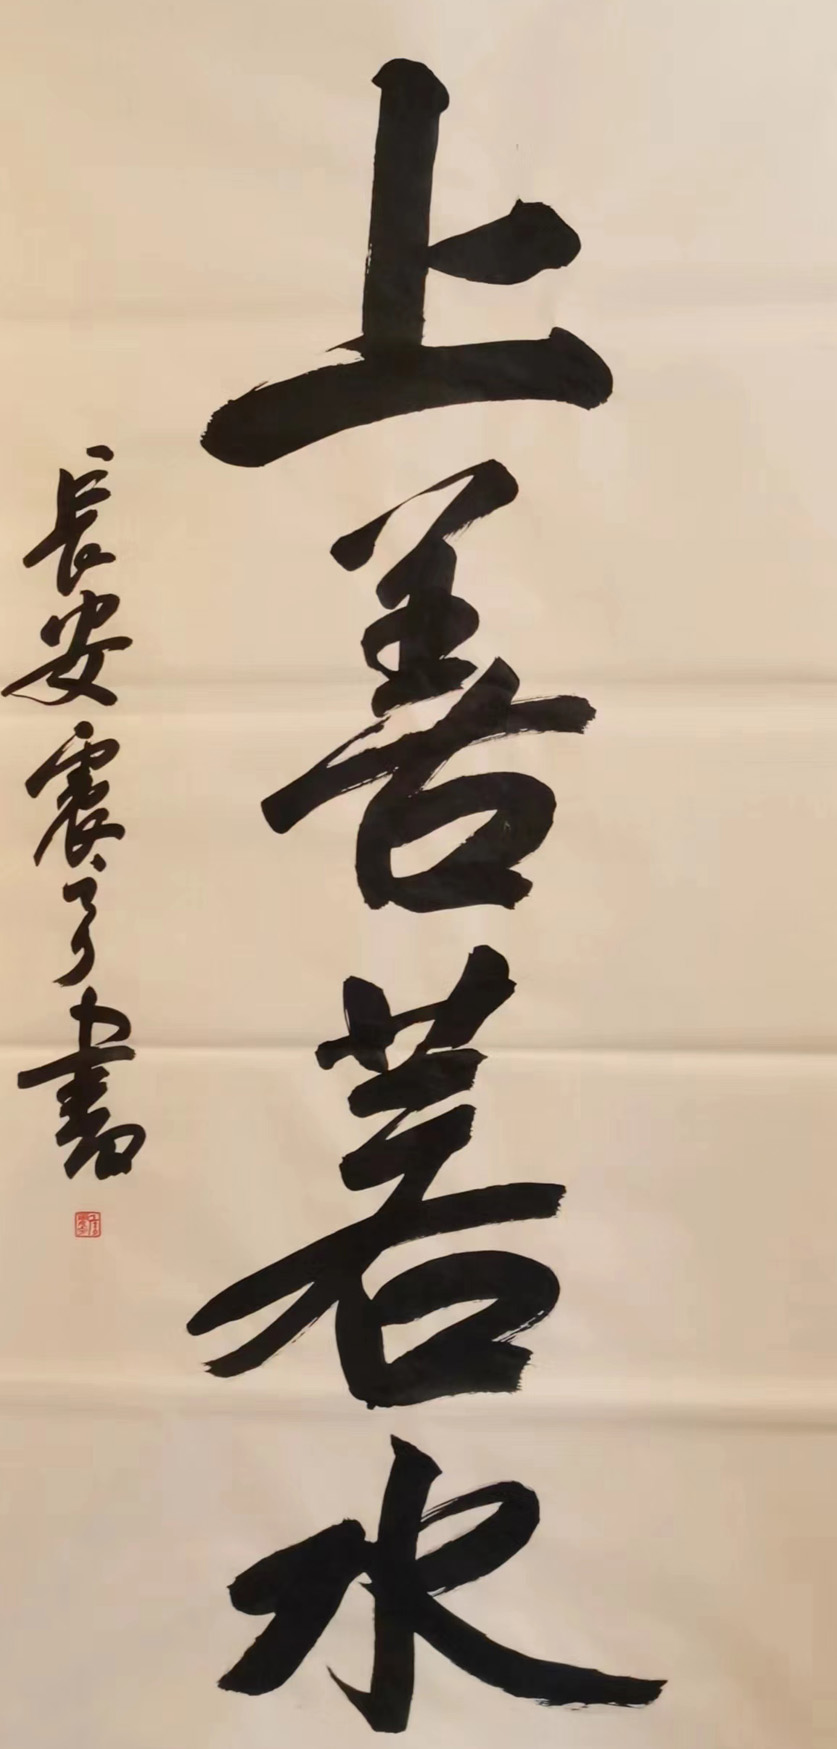 上善若水
長安震亨書